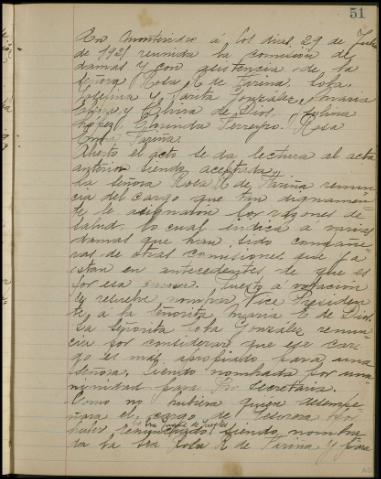 51
En Montevideo á los dias 29 de Julio
de 1921 reunida la comisión de
damas y con asistencia de la
señora Rosa R de Fariña, Lola
Josefina y Santa Gonzalez, Maria
y Elvira de Dios,
Lopez, Florinda Ferreyro, Rosa
Fariña.
Abierto el acto se da lectura al acta
anterior siendo aceptada,
La señora Rosa R de Fariña renun
cia del cargo que tan dignamen
te le asignaron por razones de
salud lo cual indica a varias
damas que han sido compañe
ras de otras comisiones que ya
estan en antecedentes de que es
por esa causa. Puesto a votación
se resuelve nombrar Vice Presiden
te a la Señorita Maria E de Dios.
La Señorita Lola Gonzalez renun
cia por considerar que ese car
go es mas apropiado para una
Señora, siendo nombrada por una
nimidad para Pro Secretaria.
Como no hubiera quien desempe
ñara el cargo de Tesorera por
haber renunciado siendo nombra
da la Sra Lola R de Fariña y para